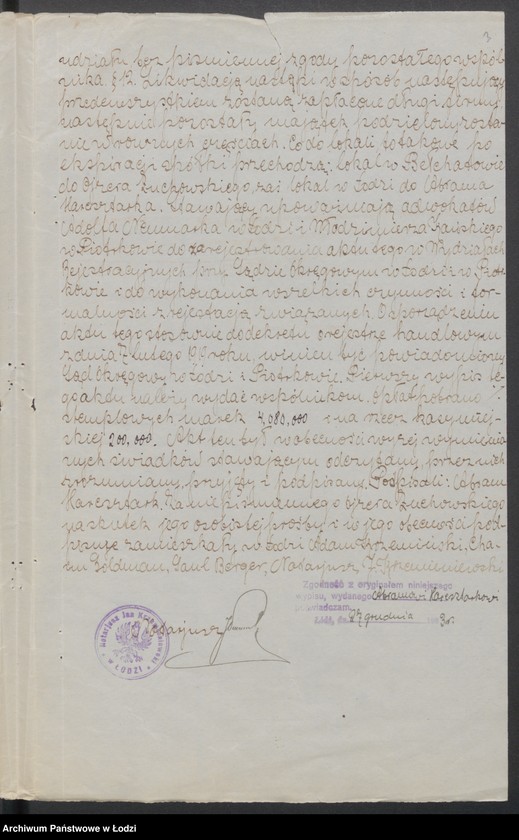 3
udziału bez piśmiennej zgody pozostałego wspól-
nika. § 12. Likwidacja nastąpi w sposób następujący:
przedewszystkiem zostaną zapłacone długi firmy,
następnie pozostały majątek podzielony zosta-
nie w równych częściach. Co do lokali to takowe po
ekspiracji spółki przechodzą: lokal w Bełchatowie
do Ojzera Żuchowskiego, zaś lokal w Łodzi do Abrama
Karesztarka. Stawający upoważniają adwokatów
Adolfa Neumarka w Łodzi i Włodzimierza
w Piotrkowie do zarejestrowania aktu tego w Wydziałach
Rejestracyjnych przy Sądzie Okręgowym w Łodzi i w Piotr-
kowie i do wykonania wszelkich czynności i for-
malności z rejestracją związanych. O sporządzeniu
aktu tego stosownie do dekretu o rejestrze handlowym
z dnia 7 lutego 1919 roku, winien być powiadomiony
Sąd Okręgowy w Łodzi i Piotrkowie. Pierwszy wypis te-
go aktu należy wydać wspólnikom. Opłat pobrano:
stemplowych marek 4.080,000 i na rzecz kasy miej-
skiej 200,000. Akt ten był w obecności wyżej wymienio-
nych świadków stawającym odczytany, przez nich
zrozumiany, przyjęty i podpisany. Podpisali: Abram
Karesztark. Za niepiśmiennego Ojzera Żuchowskiego
na skutek jego osobistej prośby i w jego obecności pod-
pisuje zamieszkały w Łodzi Adam, Cha-
im Goldman, Saul Berger, Notarjusz J. Krzemieniewski
Zgodność z oryginałem niniejszego
wypisu, wydanego Abramowi Karesztarkowi
poświadczam.
Łódź, dn. 27 grudnia 193 r.
Notarjusz
Notarjusz Jan Krzemieniewski
w ŁODZI
Archiwum Państwowe w Łodzi